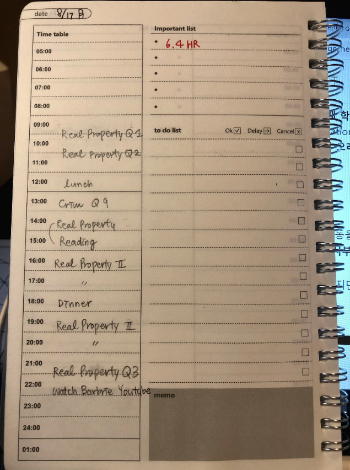 date 8/17 월
Time table
05:00
06:00
07:00
08:00
09:00
Real Property Q1
10:00
Real Property Q2
11:00
12:00 Lunch
13:00 Crim Q9
14:00 Real Property
15:00 Reading
16:00 Real Property II
17:00 〃
18:00 Dinner
19:00 Real Property II
20:00 〃
21:00 Real Property Q3
22:00 Watch Barbrie Youtube
23:00
24:00
01:00
Important list
6.4 HR
to do list Ok Delay Cancel
memo